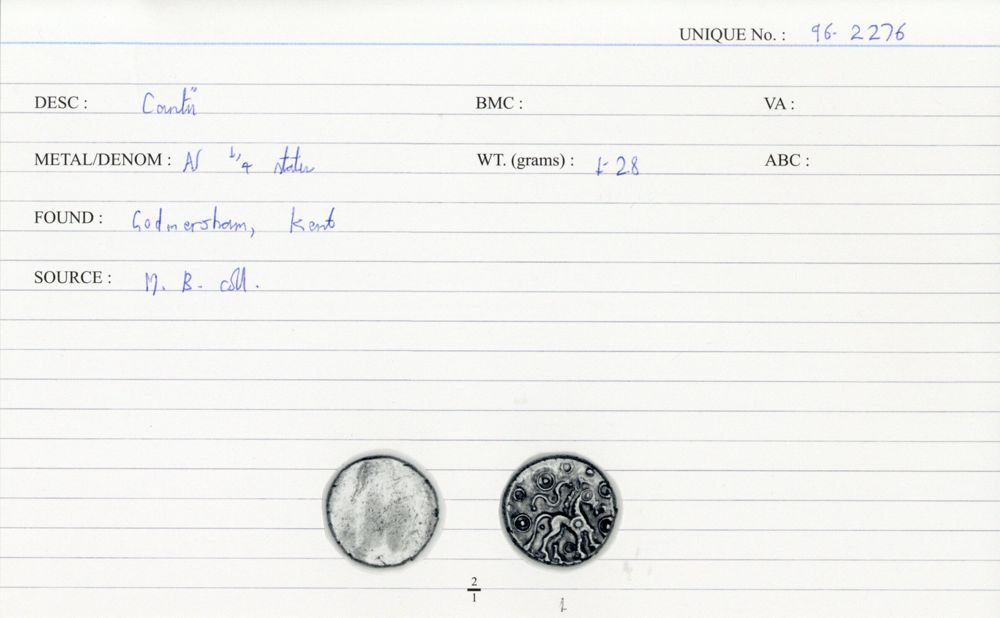 UNIQUE No. : 96- 2276
DESC : Cantii BMC : VA :
METAL/DENOM : AV 1/4 stater WT. (grams) : 1-28 ABC :
FOUND : Godmersham, Kent
SOURCE : M. B. coll.
2
1